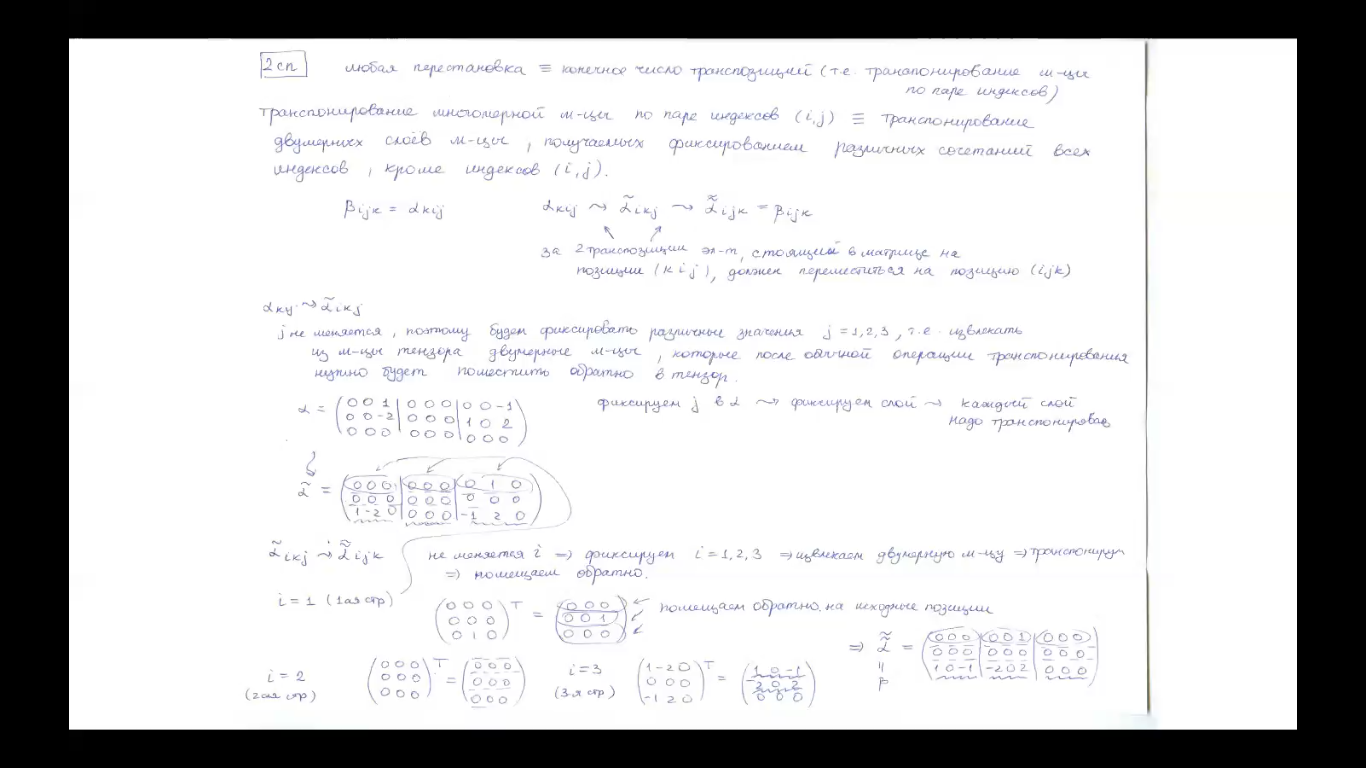 2 сп любая перестановка ≡ конечное число транспозиций (т.е. транспонирование м-цы
по паре индексов)
транспонирование многомерной м-цы по паре индексов (i,j) ≡ транспонирование
двумерных слоёв м-цы, получаемых фиксированием различных сочетаний всех
индексов, кроме индексов (i,j).
βijk = αkij αkij ⇝ α̃ikj ⇝ α̃̃ijk = βijk
за 2 транспозиции эл-т, стоящий в матрице на
позиции (kij), должен переместиться на позицию (ijk)
αkij ⇝ α̃ikj
j не меняется, поэтому будем фиксировать различные значения j = 1,2,3, т.е. извлекать
из м-цы тензора двумерные м-цы, которые после обычной операции транспонирования
нужно будет поместить обратно в тензор.
фиксируем j в α ⇝ фиксируем слой → каждый слой
надо транспонировав
α = (0 0 1 | 0 0 0 | 0 0 -1
0 0 -2 | 0 0 0 | 1 0 2
0 0 0 | 0 0 0 | 0 0 0)
α̃ = (0 0 0 | 0 0 0 | 0 1 0
0 0 0 | 0 0 0 | 0 0 0
1 -2 0 | 0 0 0 | -1 2 0)
α̃ikj ⇝ α̃̃ijk не меняется i ⇒ фиксируем i = 1,2,3 ⇒ извлекаем двумерную м-цу ⇒ транспонируем
⇒ помещаем обратно.
i = 1 (1ая стр)
(0 0 0
0 0 0
0 1 0)ᵀ = (0 0 0
0 0 1
0 0 0) помещаем обратно на исходные позиции
i = 2
(2ая стр)
(0 0 0
0 0 0
0 0 0)ᵀ = (0 0 0
0 0 0
0 0 0)
i = 3
(3-я стр)
(1 -2 0
0 0 0
-1 2 0)ᵀ = (1 0 -1
-2 0 2
0 0 0)
⇒ α̃̃ = (0 0 0 | 0 0 1 | 0 0 0
0 0 0 | 0 0 0 | 0 0 0
1 0 -1 | -2 0 2 | 0 0 0)
"
β